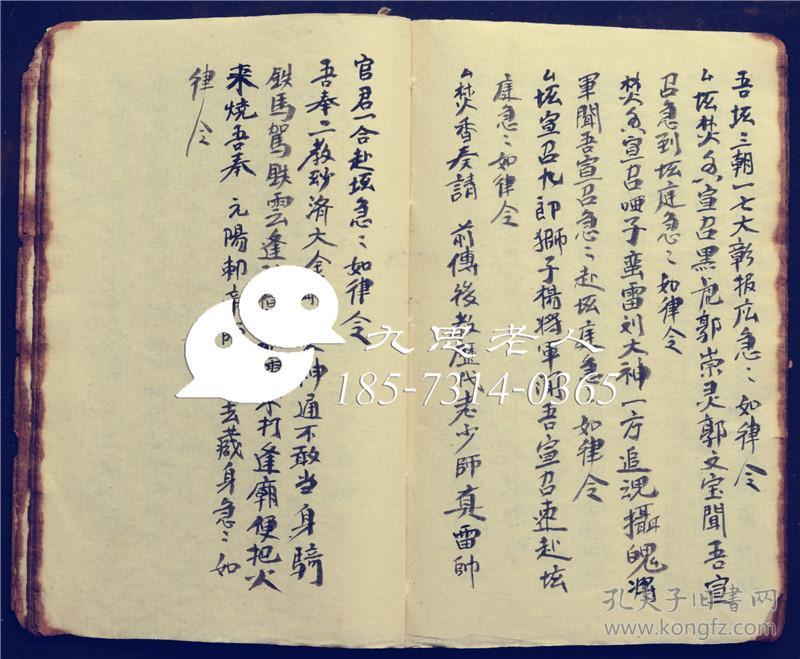 吾坛三朝一七大彰报应急〻如律令
厶坛焚香宣召黑虎郭崇灵郭文宝闻吾宣
召急到坛庭急〻如律令
焚香宣召哑子蛮雷刘大神一方追魂攝魄将
軍聞吾宣召急〻赴坛庭急〻如律令
厶坛宣召九郎獅子楊将軍 吾宣召速赴坛
庭急〻如律令
厶焚香奏請 前傳後教歷代老少師真雷帥
官君一合赴坛急〻如律令
吾奉二教 济大金 神通不敢当身騎
鉄馬駕鉄雲逢 打逢廟便把火
来燒吾奉 元陽 去藏身急〻如
律令
九思老人
185-7314-0365
孔夫子旧书网
www.kongfz.com